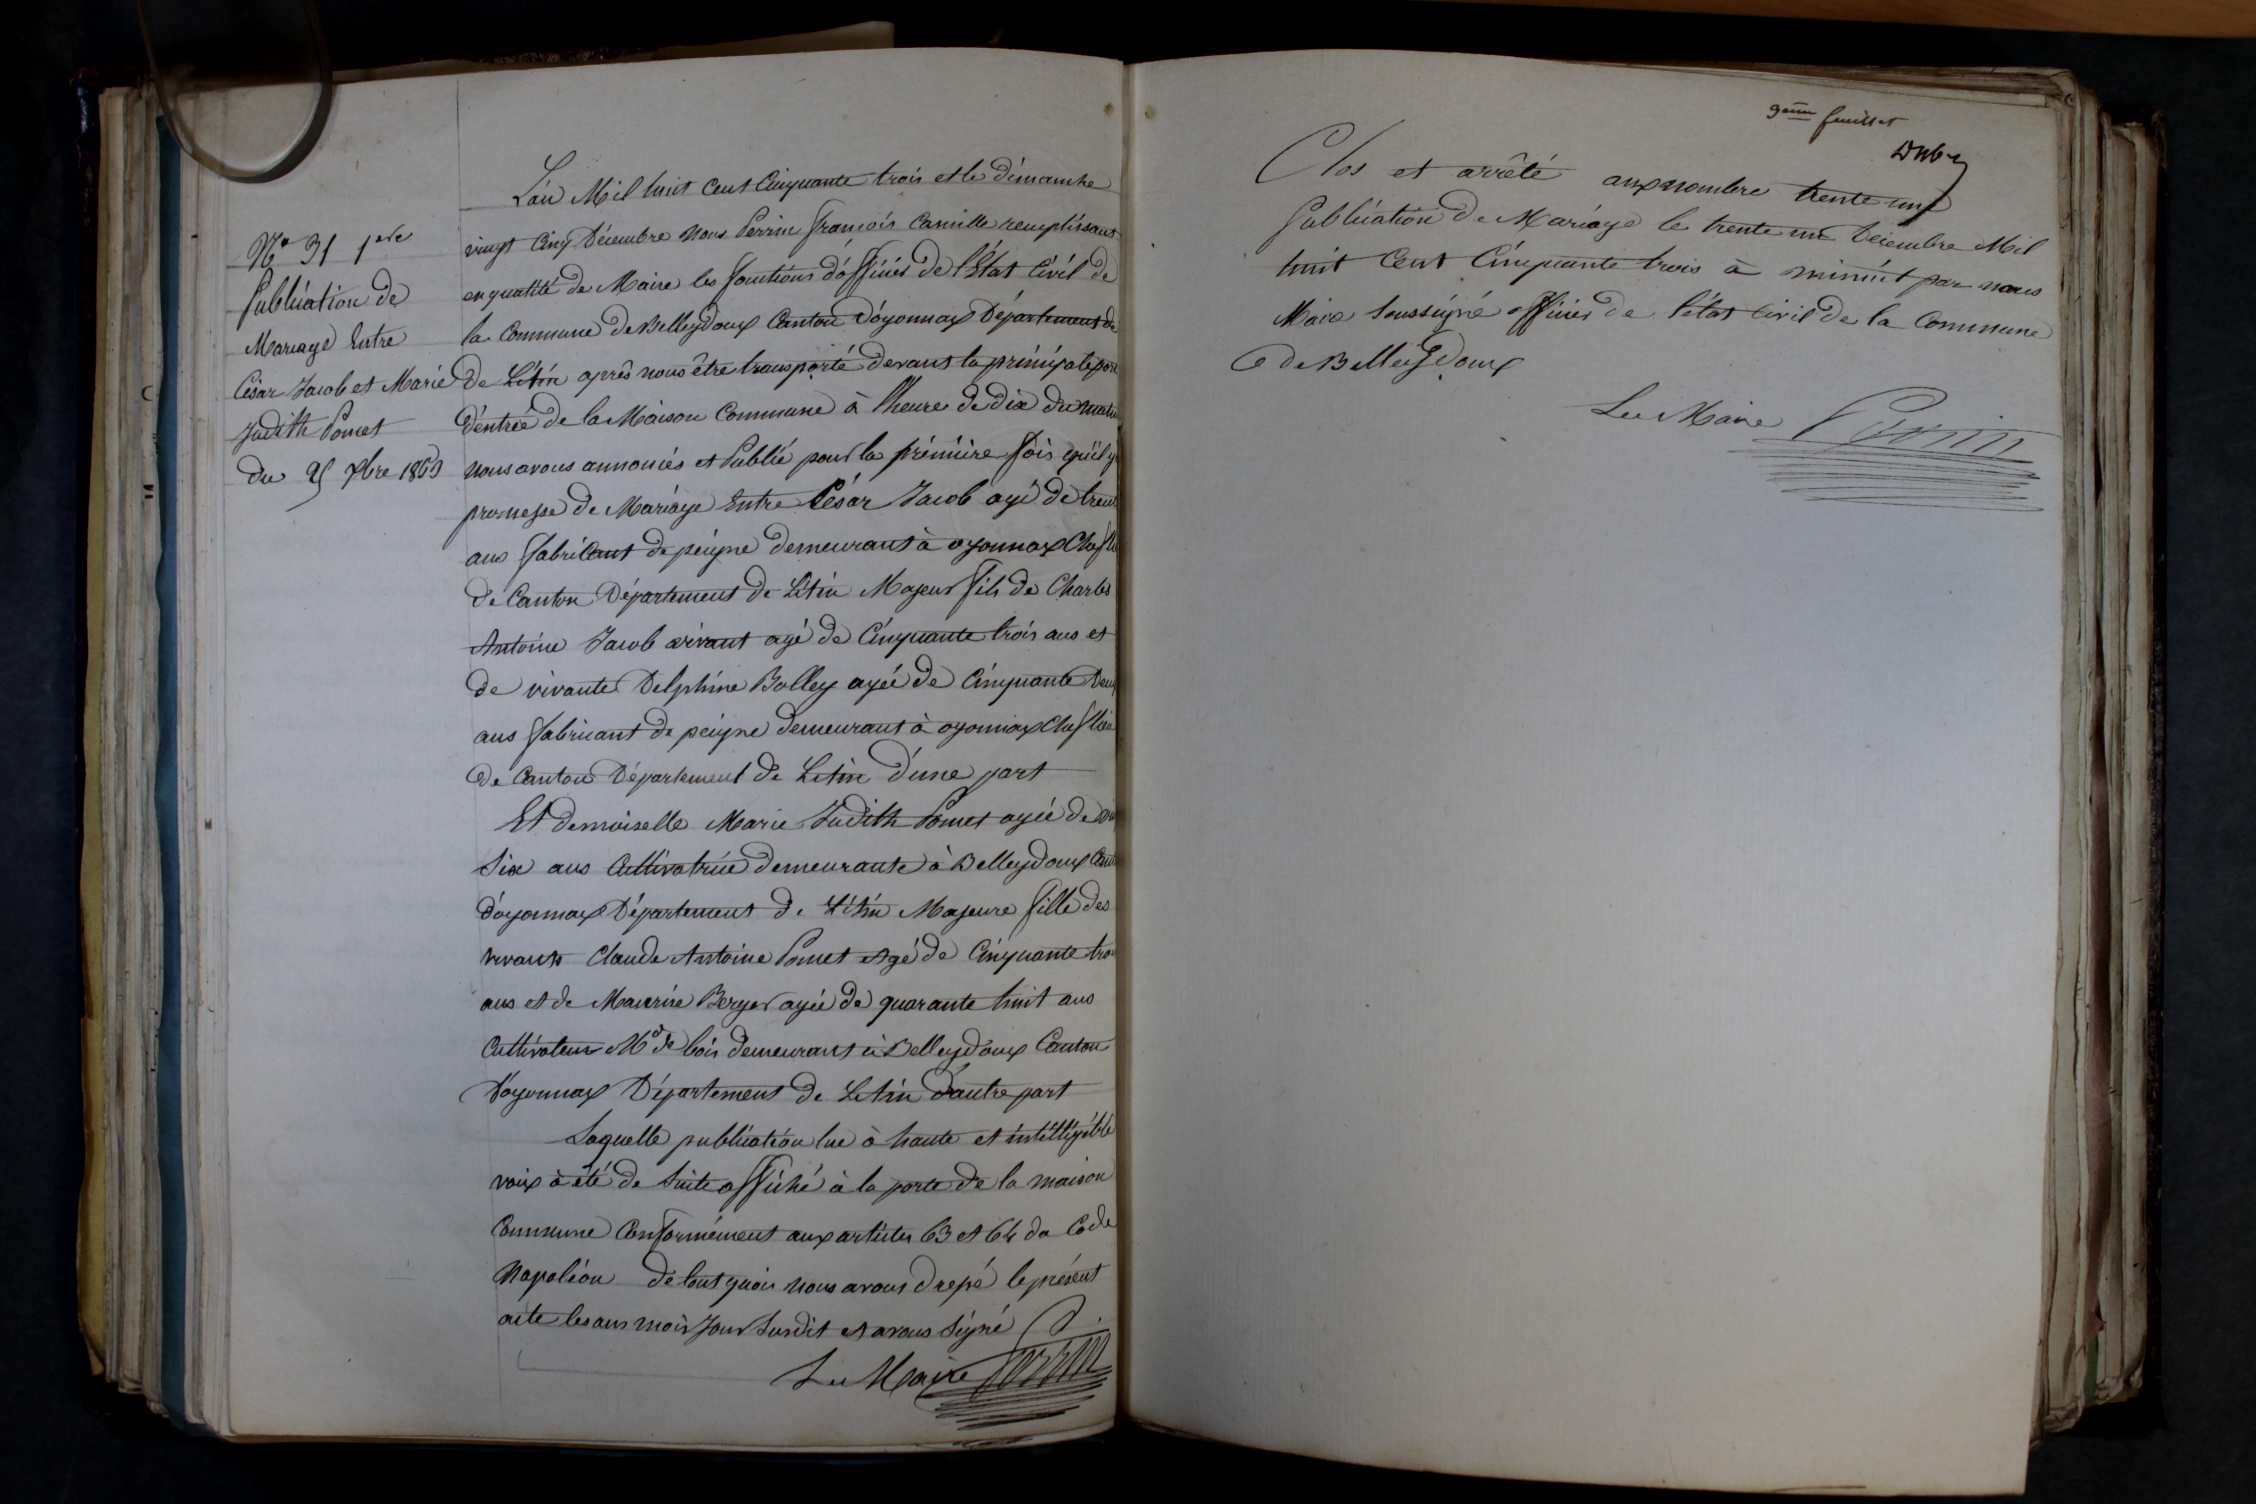 N° 31 1ere
Publication de
Mariage Entre
César Jacob et Marie
Judith Pomet
du 25 Xbre 1853
L'an Mil huit cent Cinquante trois et le dimanche
vingt Cinq Décembre Nous Perrin François Camille remplissant
en qualité de Maire les fonctions d'officier de l'État Civil de
la Commune de Belleydoux Canton d'oyonnax Département de
de L'Ain après nous être transporté devant la principale porte
d'entrée de la Maison Commune à l'heure de dix du matin
nous avons annoncés et Publié pour la première fois qu'il y
promesse de Mariage Entre César Jacob agé de trente
ans fabricant de peigne demeurant à oyonnax Chef lie
de Canton Département de L'Ain Majeur fils de Charles
Antoine Jacob vivant agé de Cinquante trois ans et
de vivante Delphine Bolley agée de Cinquante Deux
ans fabricant de peigne demeurant à oyonnax Chef lieu
de Canton Département de L'Ain d'une part
Et demoiselle Marie Judith Pomet agée de
Six ans Cultivatrice demeurante à Belleydoux Cant
d'oyonnax Département de L'Ain Majeure fille des
vivants Claude Antoine Pomet Agé de Cinquante trois
ans et de Berger agée de quarante huit ans
Cultivateur Md de bois demeurant à Belleydoux Canton
D'oyonnax Département de L'Ain d'autre part
Laquelle publication lue à haute et intelligible
voix à été de Suite affiché à la porte de la maison
Commune Conformément aux articles 63 et 64 du Code
Napoléon de tout quoi nous avons drepé le présent
acte les ans mois Jour Susdit et avons Signé
Le Maire Perrin
9eme feuillet
Clos et arrêté aux nombre trente une
Publication de Mariage le trente un Décembre Mil
huit Cent Cinquante trois à minuit par nous
Maire Soussigné officier de l'état Civil de la Commune
de Belleydoux
Le Maire Perrin